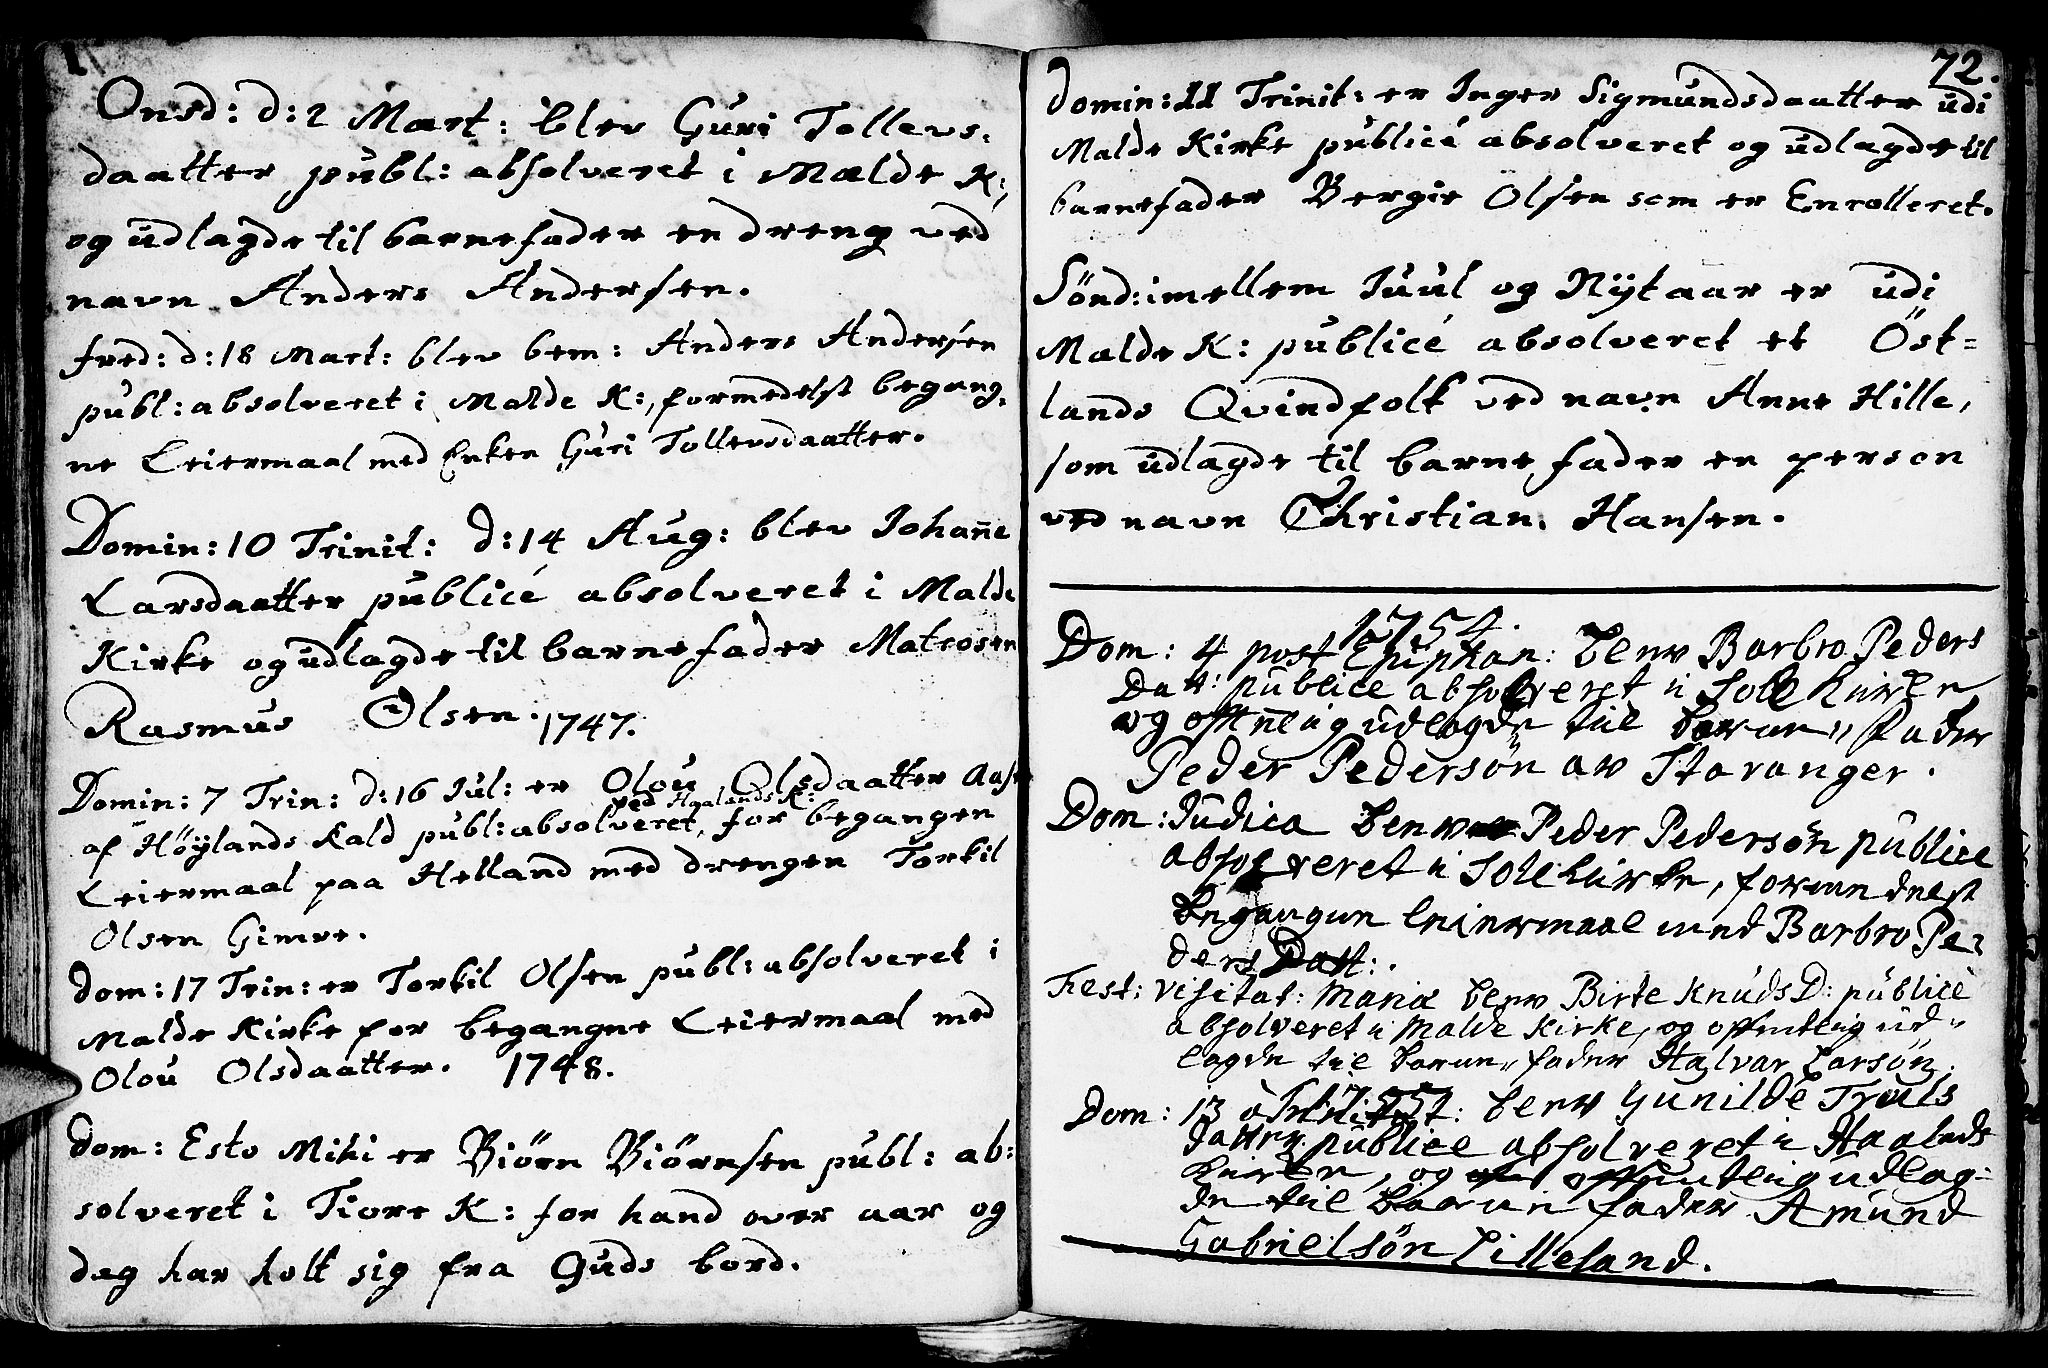 Onsd: d: 2 Mart: blev Guri Tollevs-
daatter publ: absolveret i Malde K:,
og udlagde til barnefader en dreng ved
navn Anders Andersen.
fred: d: 18 Mart: blev bem: Anders Andersen
publ: absolveret i Malde K:, formedelst begang-
ne Leiermaal med Enken Guri Tollevsdaatter.
Domin: 10 Trinit: d: 14 Aug: blev Johañe
Larsdaatter publicé absolveret i Malde
Kirke og udlagde til barnefader Matrosen
Rasmus Olsen. 1747.
Domin: 7 Trin: d: 16 Jul: er Olou Olsdaatter
ved Haalands K:
af Höylands Kald publ: absolveret, for begangen
Leiermaal paa Helland med drengen Torkil
Olsen Gimre.
Dom: 17 Trin: er Torkil Olsen publ: absolveret i
Malde Kirke for begangne Leiermaal med
Olou Olsdaatter. 1748.
Dom: Esto Mihi er Biörn Biörnsen publ: ab:
solveret i Tiore K: for hand over aar og
dag har holt sig fra Guds bord.
72.
Domin: 11 Trinit: er Inger Sigmundsdaatter udi
Malde Kirke publicé absolveret og udlagde til
barnefader Bergie Olsen som er Enrolleret.
Sönd: imellem Juul og Nÿtaar er udi
Malde K: publicé absolveret et Öst=
lands Qvindfolk ved navn Anne Hille,
som udlagde til barnefader en person
ved navn Christian Hansen.
1754.
Dom: 4 post Epiphan: blev Barbro Peders
Datt: publice absolveret i Sole Kirke
og offentlig udlagde til barne fader
Peder Pedersön av Stavanger.
Dom: Judica blev Peder Pedersön publice
absolveret i Sole Kirke, formedelst
begangen leiermaal med Barbro Pe-
ders Datt:.
Fest: Visitat: Mariæ blev Birte Knuds D: publicè
absolveret i Malde Kirke, og offentlig ud-
lagde til barne fader Halvar Larsön.
1755
Dom: 13 à Trinitat: blev Gunilde Trouls
datter publice absolveret i Haalands
Kirke, og offentlig udlag=
de til barne fader Amund
Gabrielsön Lilleland.